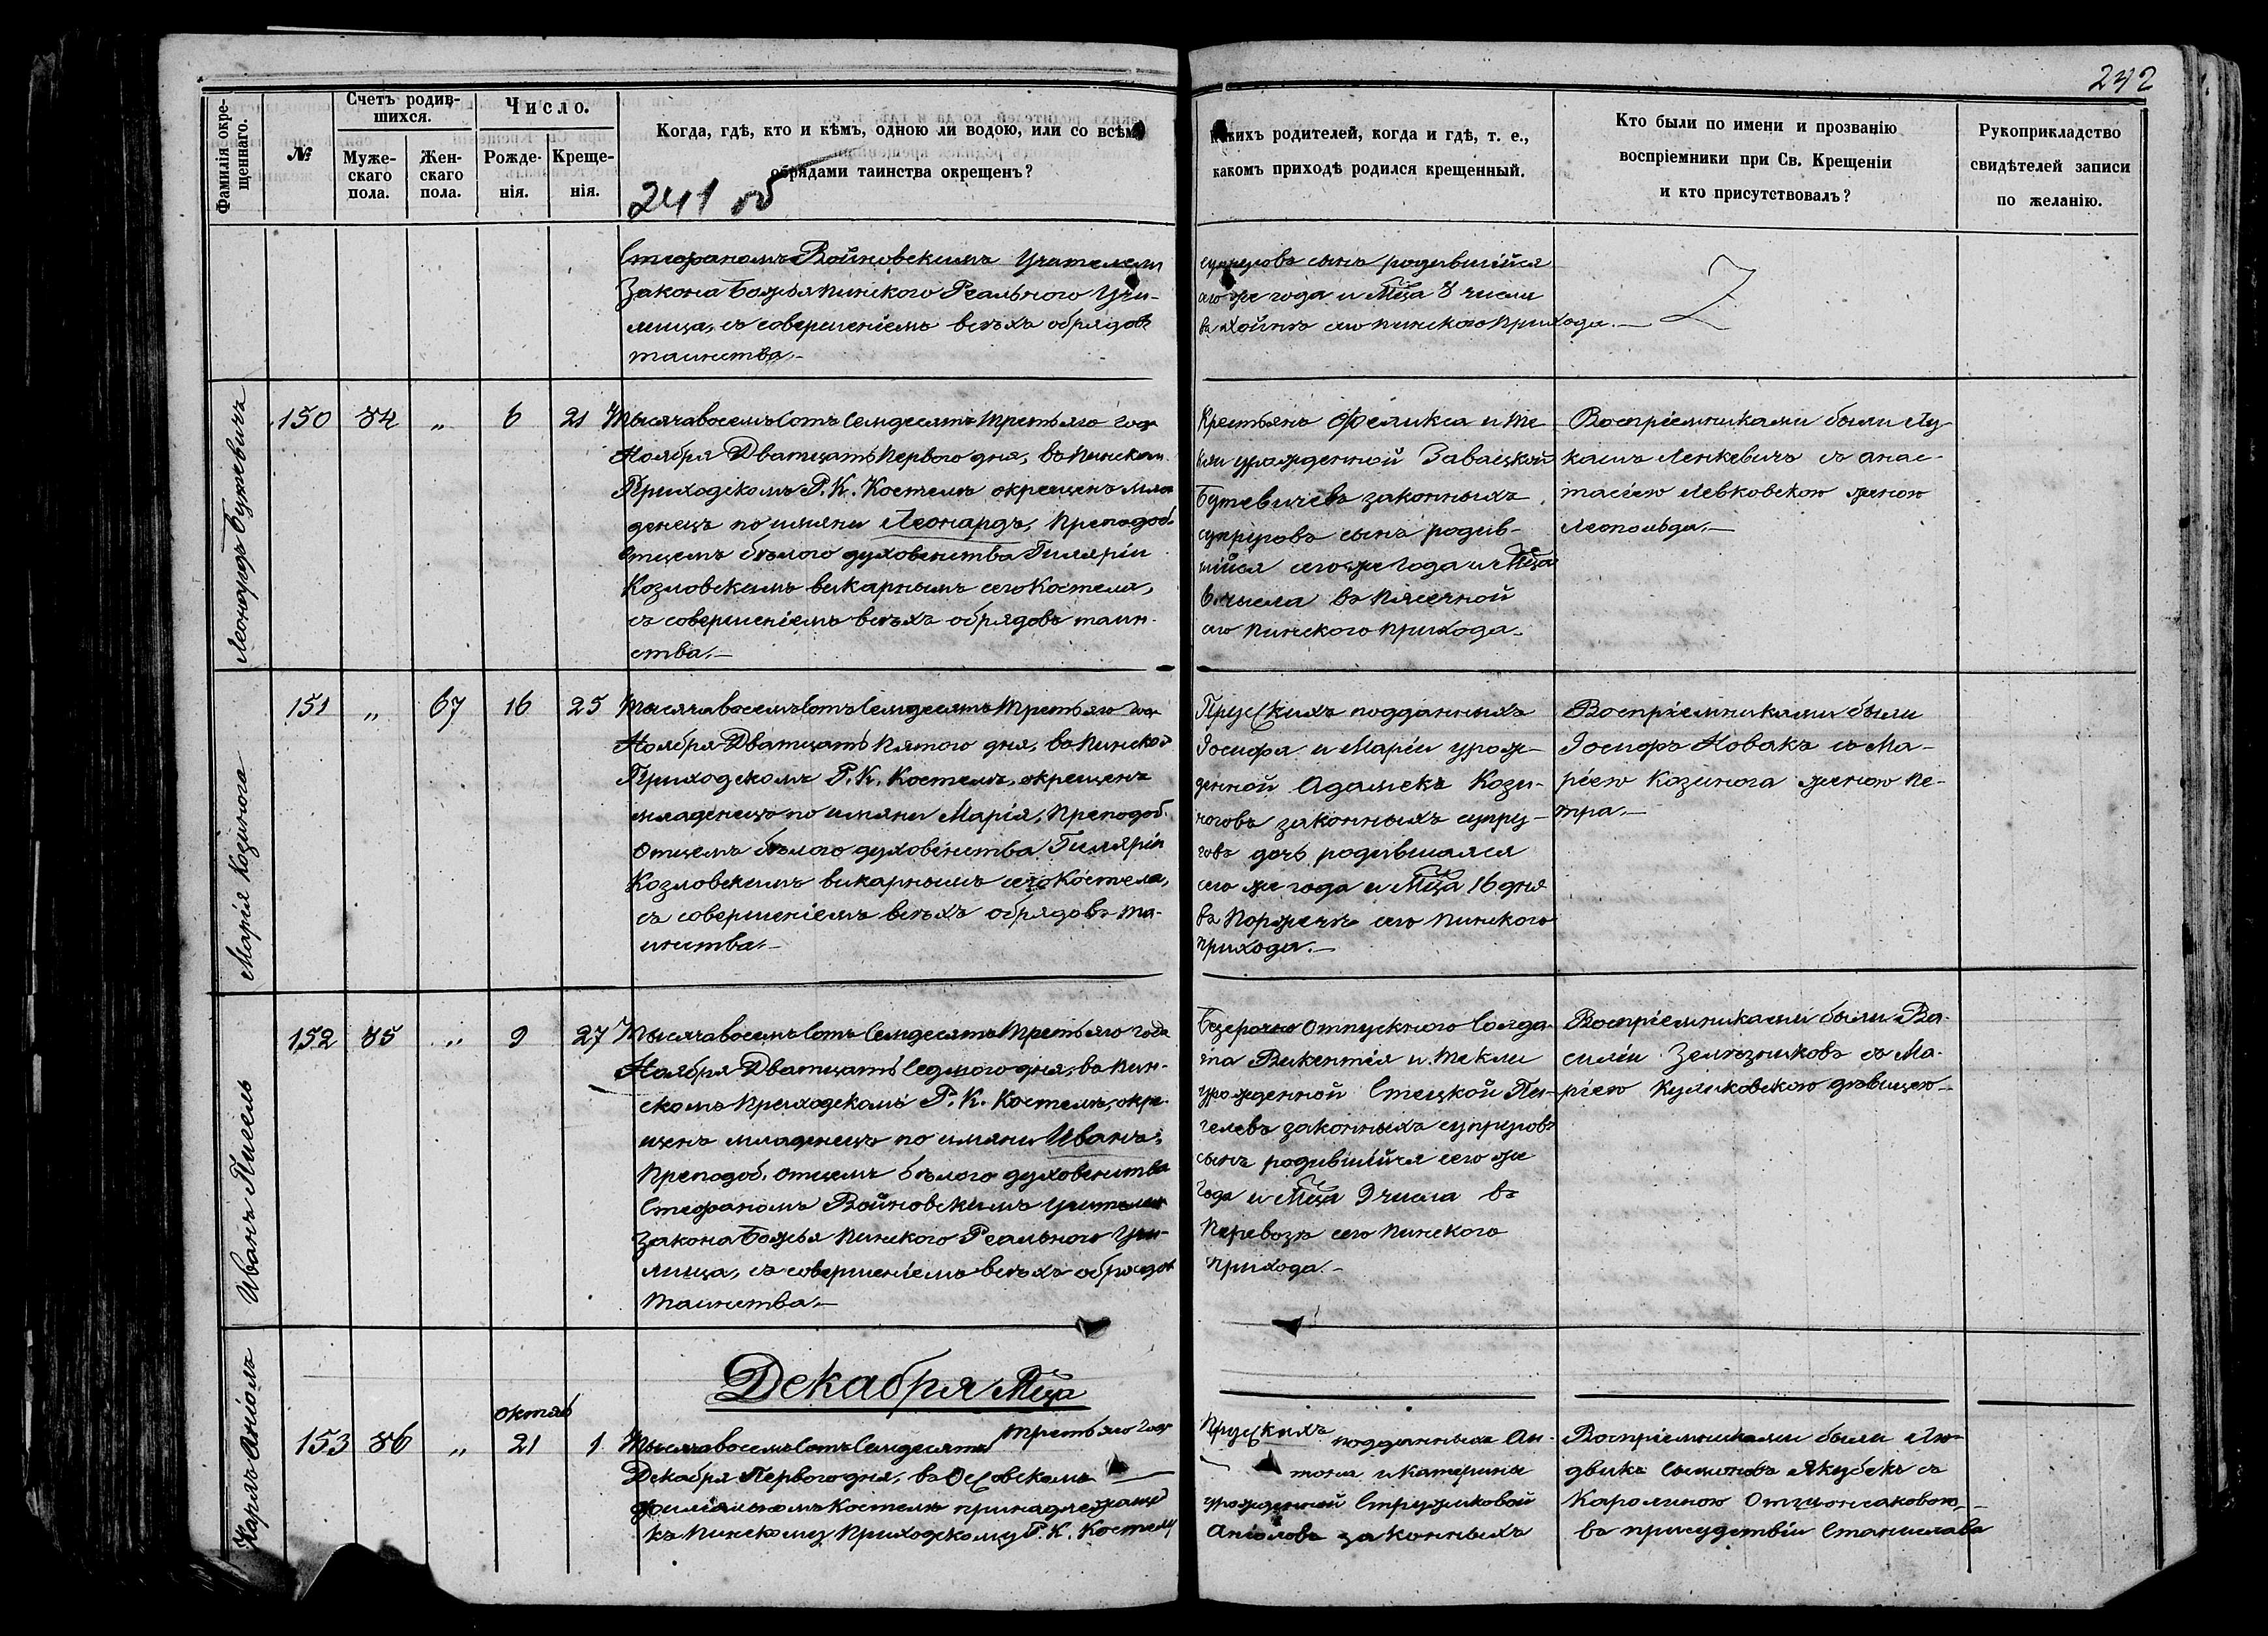 242
Фамилія окре-
щеннаго.
№
Счетъ родив-
шихся.
Муже-
скаго
пола.
Жен-
скаго
пола.
Число.
Рожде-
нія.
Креще-
нія.
Когда, гдѣ, кто и кѣмъ, одною ли водою, или со всѣм
обрядами таинства окрещенъ?
241 об
какихъ родителей, когда и гдѣ, т. е.,
какомъ приходѣ родился крещенный.
Кто были по имени и прозванію
воспріемники при Св. Крещеніи
и кто присутствовалъ?
Рукоприкладство
свидѣтелей записи
по желанію.
Стефаномъ Войновскимъ Учителемъ
Закона Божья Пинского Реального Учи-
лища, съ совершеніемъ всѣхъ обрядов
таинства.—
супруговъ сынъ родившійся
сего же года и Мца 8 числа
въ Хойнѣ сего Пинского Прихода.—
Леонардъ Бутевичъ
150 84 „ 6 21
Тысяча восемъ Сотъ Семдесятъ Третьяго год
Ноября Дватцать Первого дня, въ Пинском
Приходскомъ Р. К. Костелѣ окрещенъ мла
денецъ по имяни Леонардъ, Преподоб.
Отцемъ бѣлого духовенства Гиляріи
Козловскимъ викарнымъ сего Костела,
съ совершеніемъ всѣхъ обрядовъ таин-
ства.—
Крестьянъ Феликса и Те
кли урожденной Завацкой
Бутевичевъ законныхъ
супруговъ сынъ родив-
шійся сего же Года и Мца
6. числа въ Плесечной
сего Пинского Прихода.
Воспріемниками были Лу
кашъ Ленкевичъ съ Анас-
тасіею Левковскою женою
Леопольда.—
Марія Козинога
151 „ 67 16 25
Тысяча восемъ Сотъ Семдесятъ Третьяго год
Ноября Дватцать Пятого дня, въ Пинском
Приходскомъ Р. К. Костелѣ, окрещенъ
младенецъ по имяни Марія, Преподоб.
Отцемъ бѣлого духовенства Гиляріи
Козловскимъ викарнымъ сего Костела,
съ совершеніемъ всѣхъ обрядовъ та-
инства.—
Прусскихъ подданныхъ
Іосифа и Маріи урож-
денной Адамекъ Кози-
ноговъ законныхъ супру-
говъ дочь родившаяся
сего же года и Мца 16 дня
въ Порѣчьи сего Пинского
Прихода.—
Воспріемниками были
Іосифъ Новакъ съ Ма-
ріею Козинога женою Пе-
тра.—
Иванъ Пигель
152 85 „ 9 27
Тысяча восемъ Сотъ Семдесятъ Третьяго года
Ноября Дватцать Седмого дня, въ Пин-
скомъ Приходскомъ Р. К. Костелѣ, окре-
щенъ младенецъ по имяни Иванъ,
Преподоб. Отцемъ бѣлого духовенства
Стефаномъ Войновскимъ Учителем
Закона Божья Пинского Реального Учи-
лища, съ совершеніемъ всѣхъ обрядов
Таинства.—
Безсрочно Отпускного Солда-
та Викентія и Текли
урожденной Стецкой Пи-
гелевъ законныхъ супруговъ
сынъ родившійся сего же
Года и Мца 9 числа въ
Перевозѣ сего Пинского
Прихода.—
Воспріемниками были Ва-
силіи Землезниковъ съ Ма-
ріею Куликовскою дѣвицею.—
Декабря Мца
Карлъ Аніолъ
октяб
153 86 „ 21 1
Тысяча восемъ Сотъ Семдесятъ Третьяго год
Декабря Первого дня, въ Осовскомъ
Филіальномъ Костелѣ принадлежаще
къ Пинскому Приходскому Р. К. Костелу
Прусскихъ подданныхъ Ан-
тона и Катерины
урожденной Стружиковой
Аніоловъ законныхъ
Воспріемниками были Лю-
двикъ Сымоновъ Якубекъ съ
Каролиною
въ присудствіи Станислава